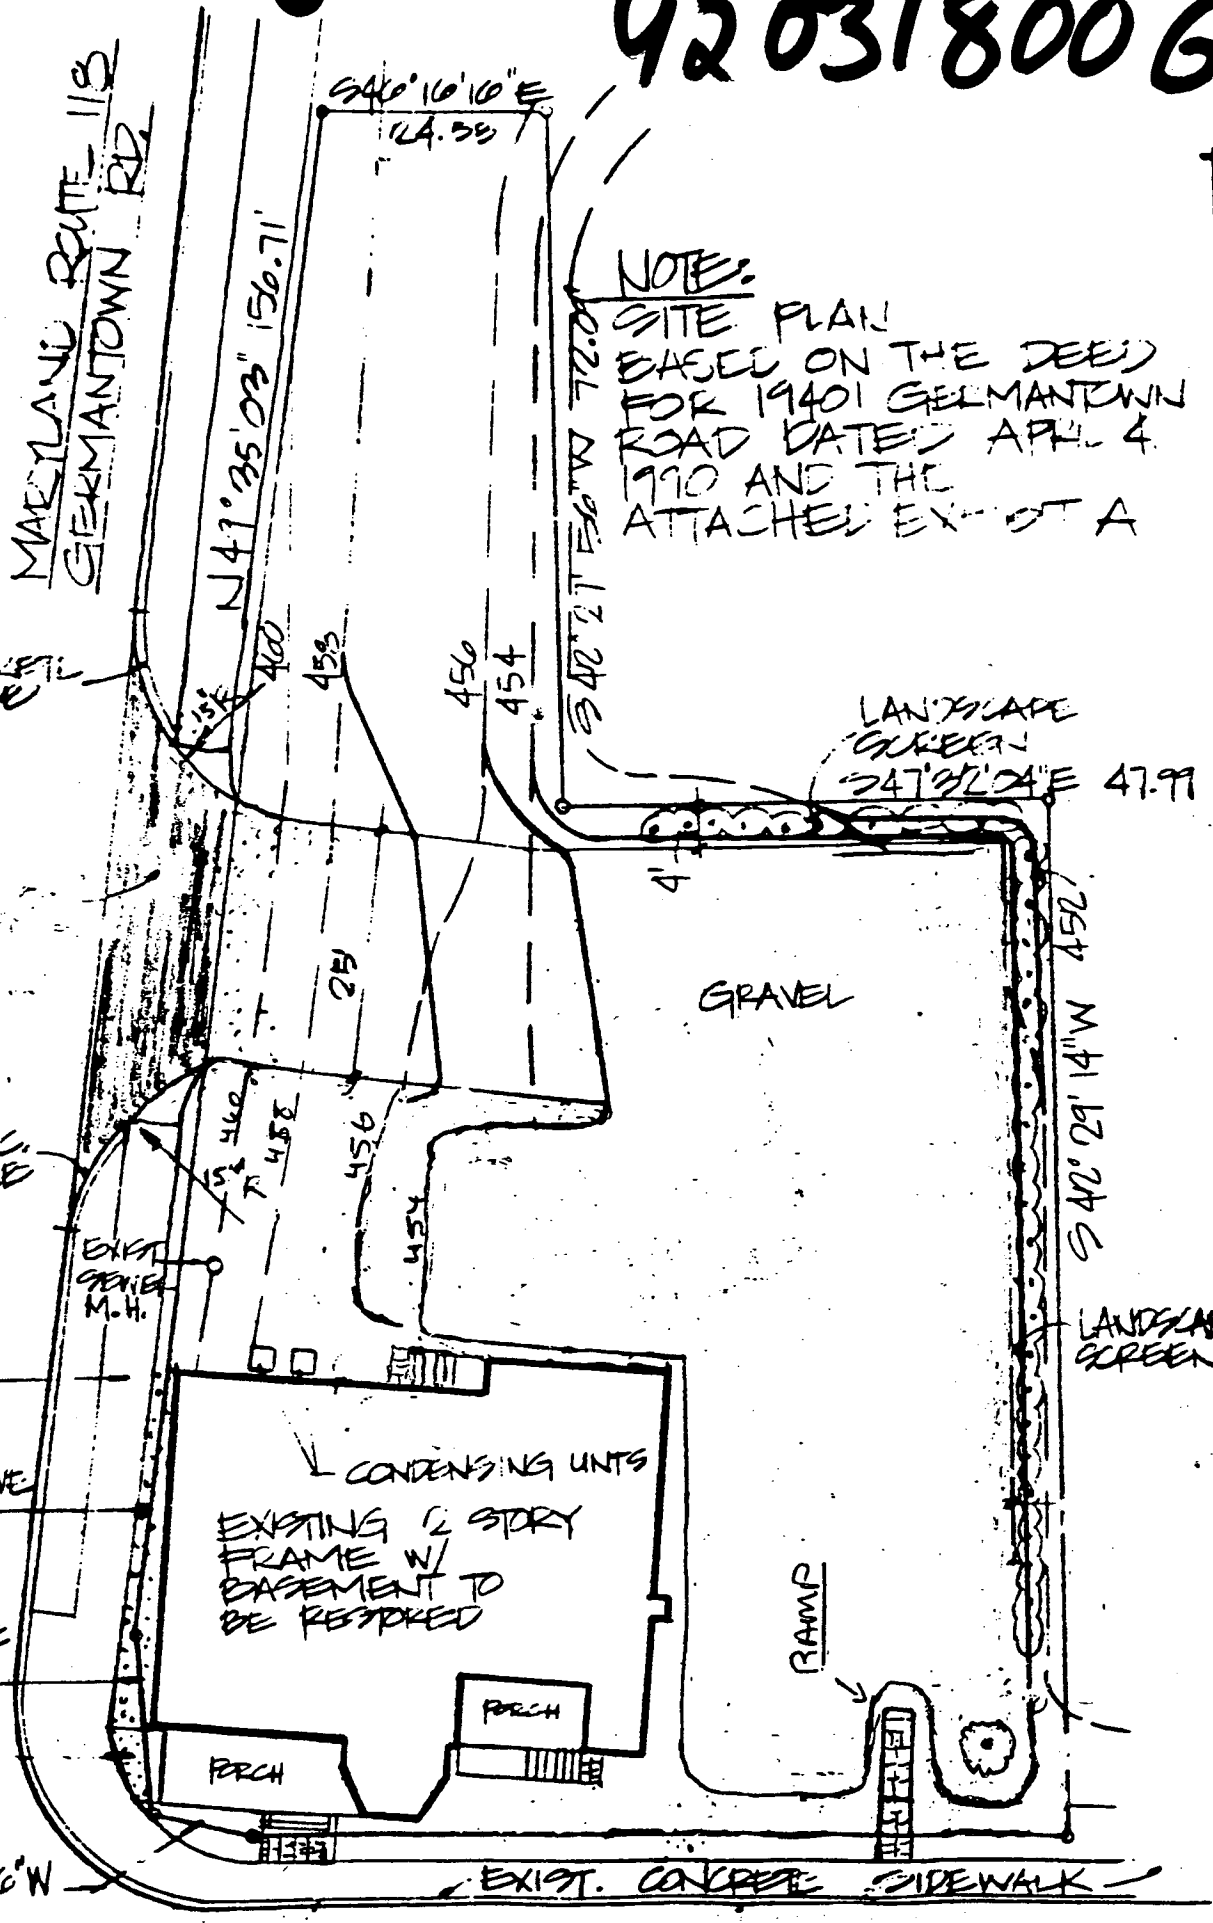 92031800G
S46°16'16"E
24.38
MARYLAND ROUTE 118
GERMANTOWN RD.
N47°35'03" 156.71'
NOTE:
SITE PLAN
BASED ON THE DEED
FOR 19401 GERMANTOWN
ROAD DATED APRIL 4
1990 AND THE
ATTACHED A
S42°27'56"W 72.0
460
458
456
454
15' R
LANDSCAPE
SCREEN
S47°32'04"E 47.99
4'
452
25'
GRAVEL
S42°29'14"W
460
458
456
454
15' R
EXIST
SEWER
M.H.
LANDSCA
SCREEN
CONDENSING UNTS
EXISTING 2 STORY
FRAME W/
BASEMENT TO
BE RESTORED
RAMP
PORCH
PORCH
"W
EXIST. CONCRETE SIDEWALK